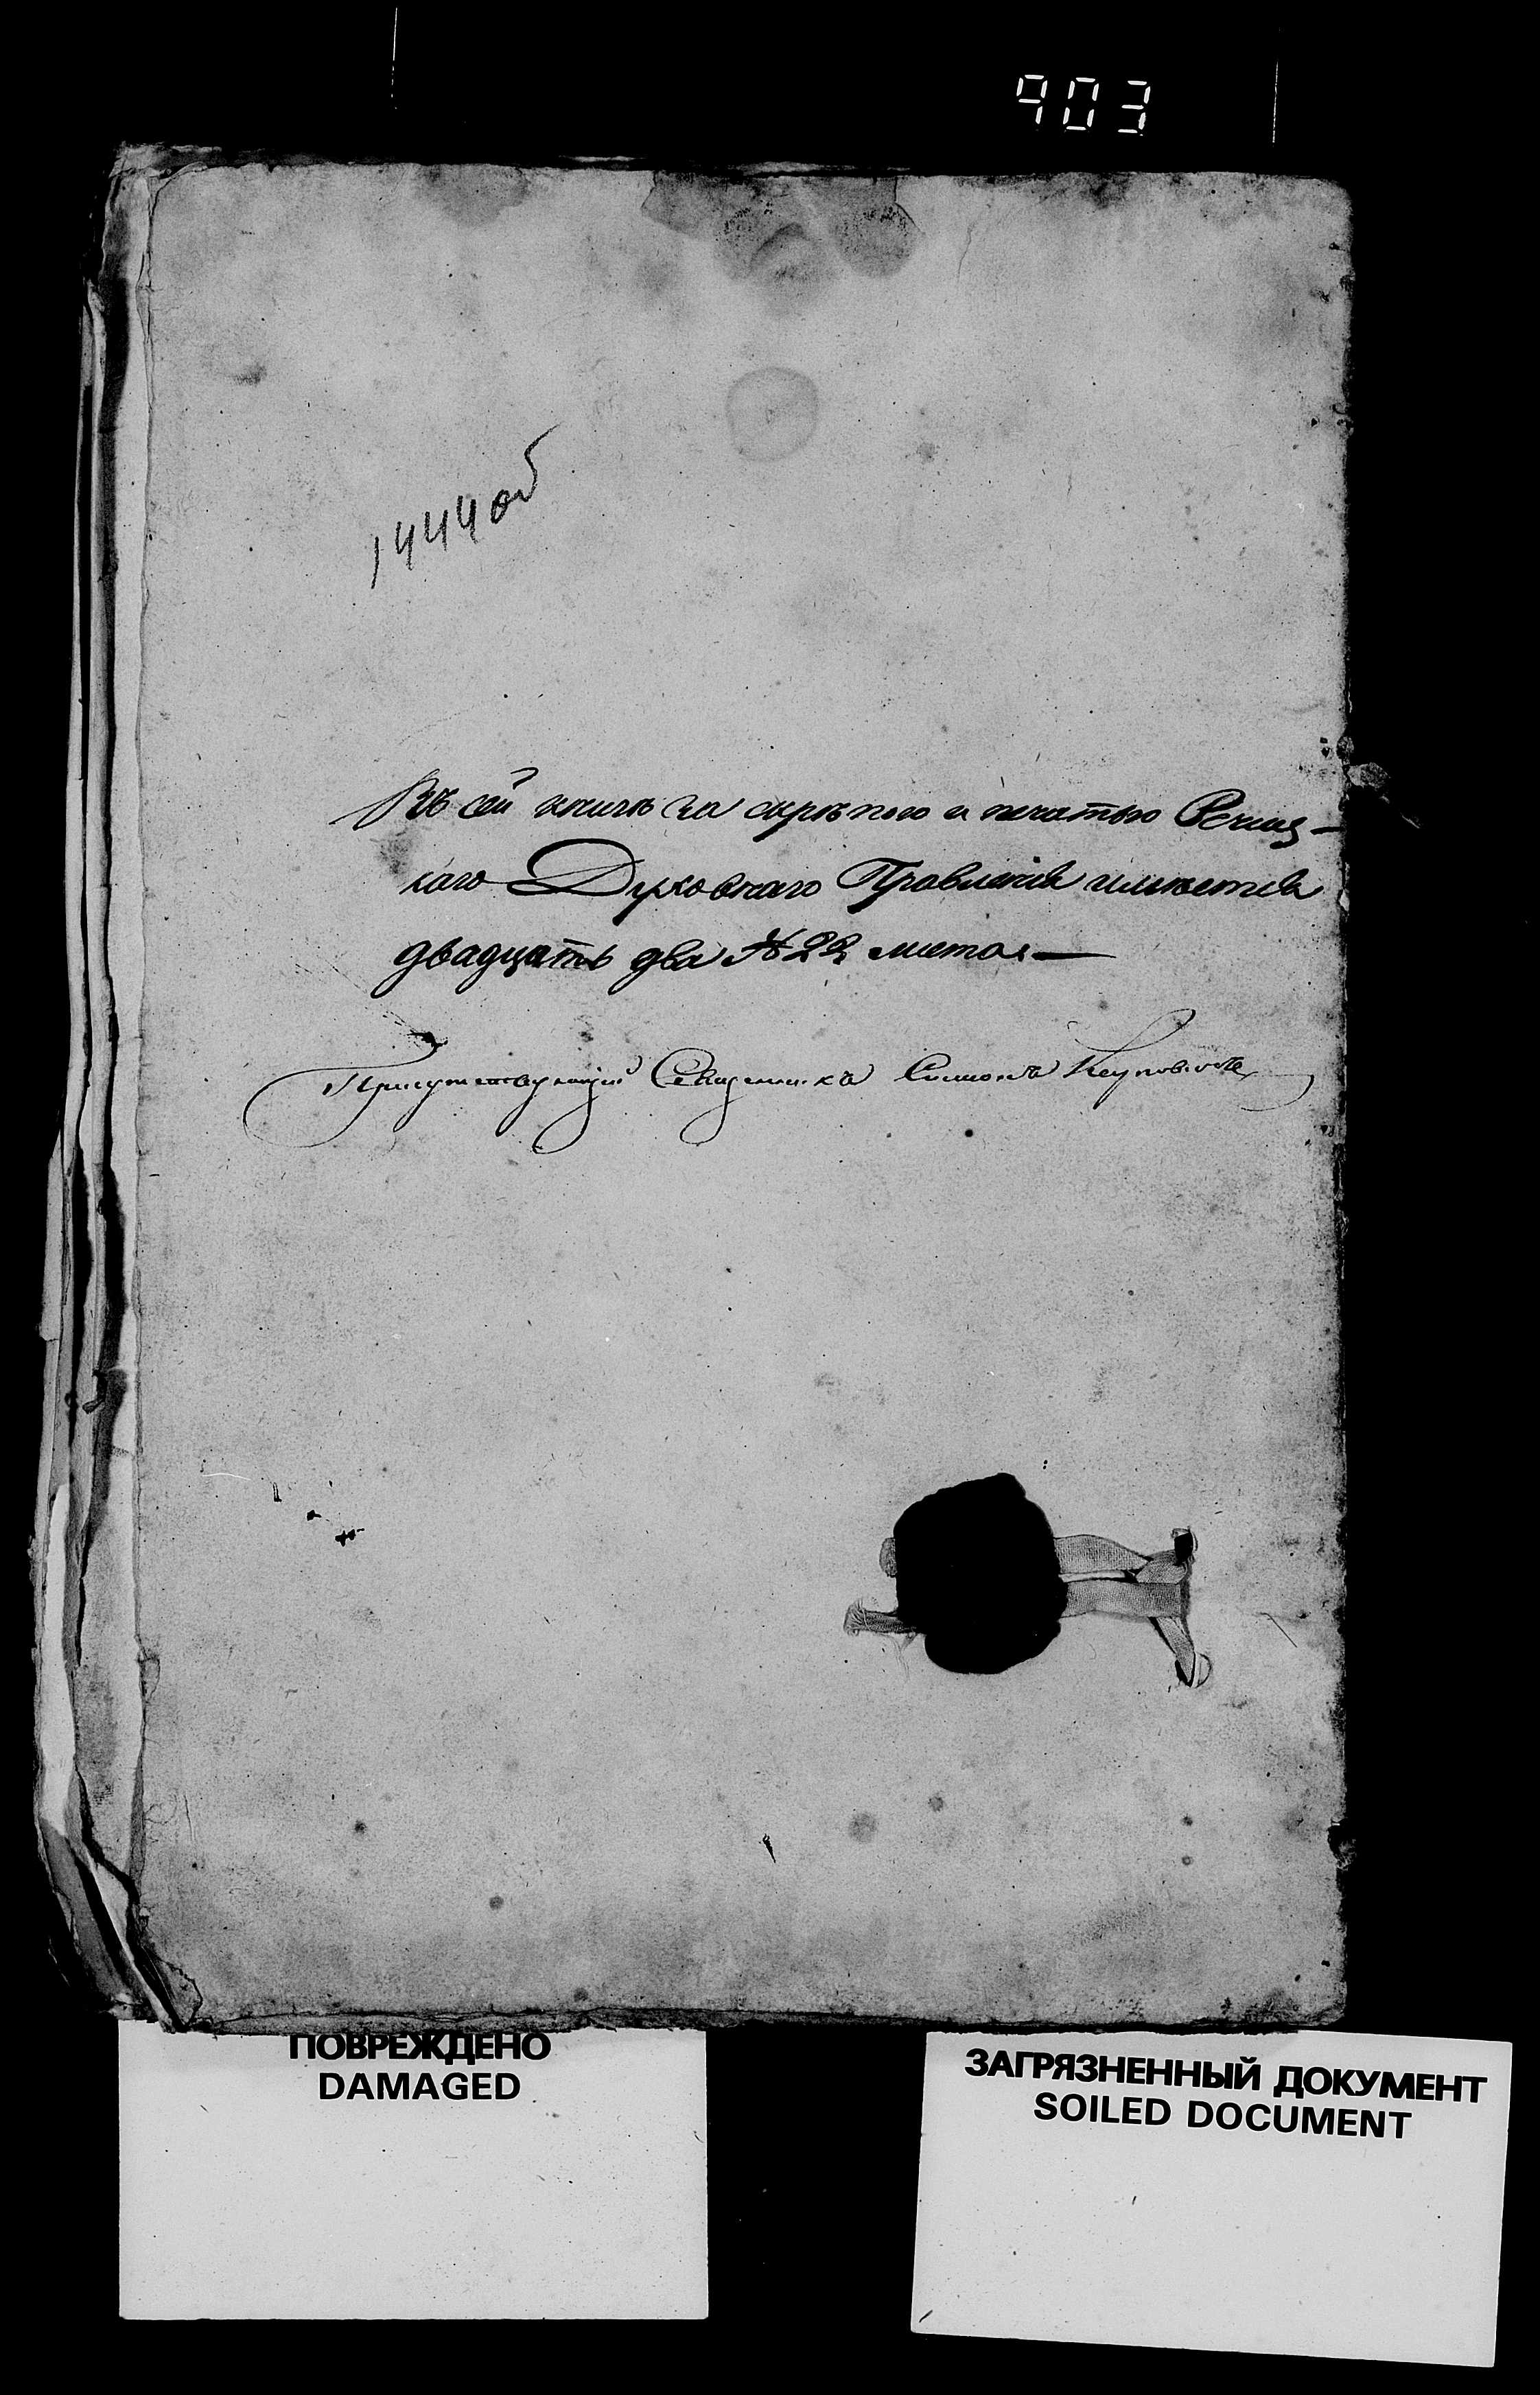 903
1444об
Въ сей книгѣ за скрѣпою и печатью Речиц-
каго Духовнаго Правленія имѣется
двадцать два № 22 листа.—
Присутствующій Священникъ Симонъ
ПОВРЕЖДЕНО
DAMAGED
ЗАГРЯЗНЕННЫЙ ДОКУМЕНТ
SOILED DOCUMENT